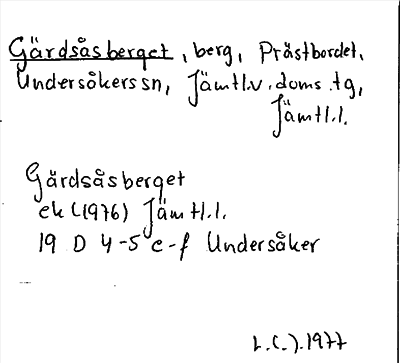 Gärdsåsberget, berg, Prästbordet,
Undersåkers sn, Jämtl.v.doms.tg,
Jämtl.l.
Gärdsåsberget
ek (1976) Jämtl.l.
19 D 4-5 e-f Undersåker
L.(.).1977